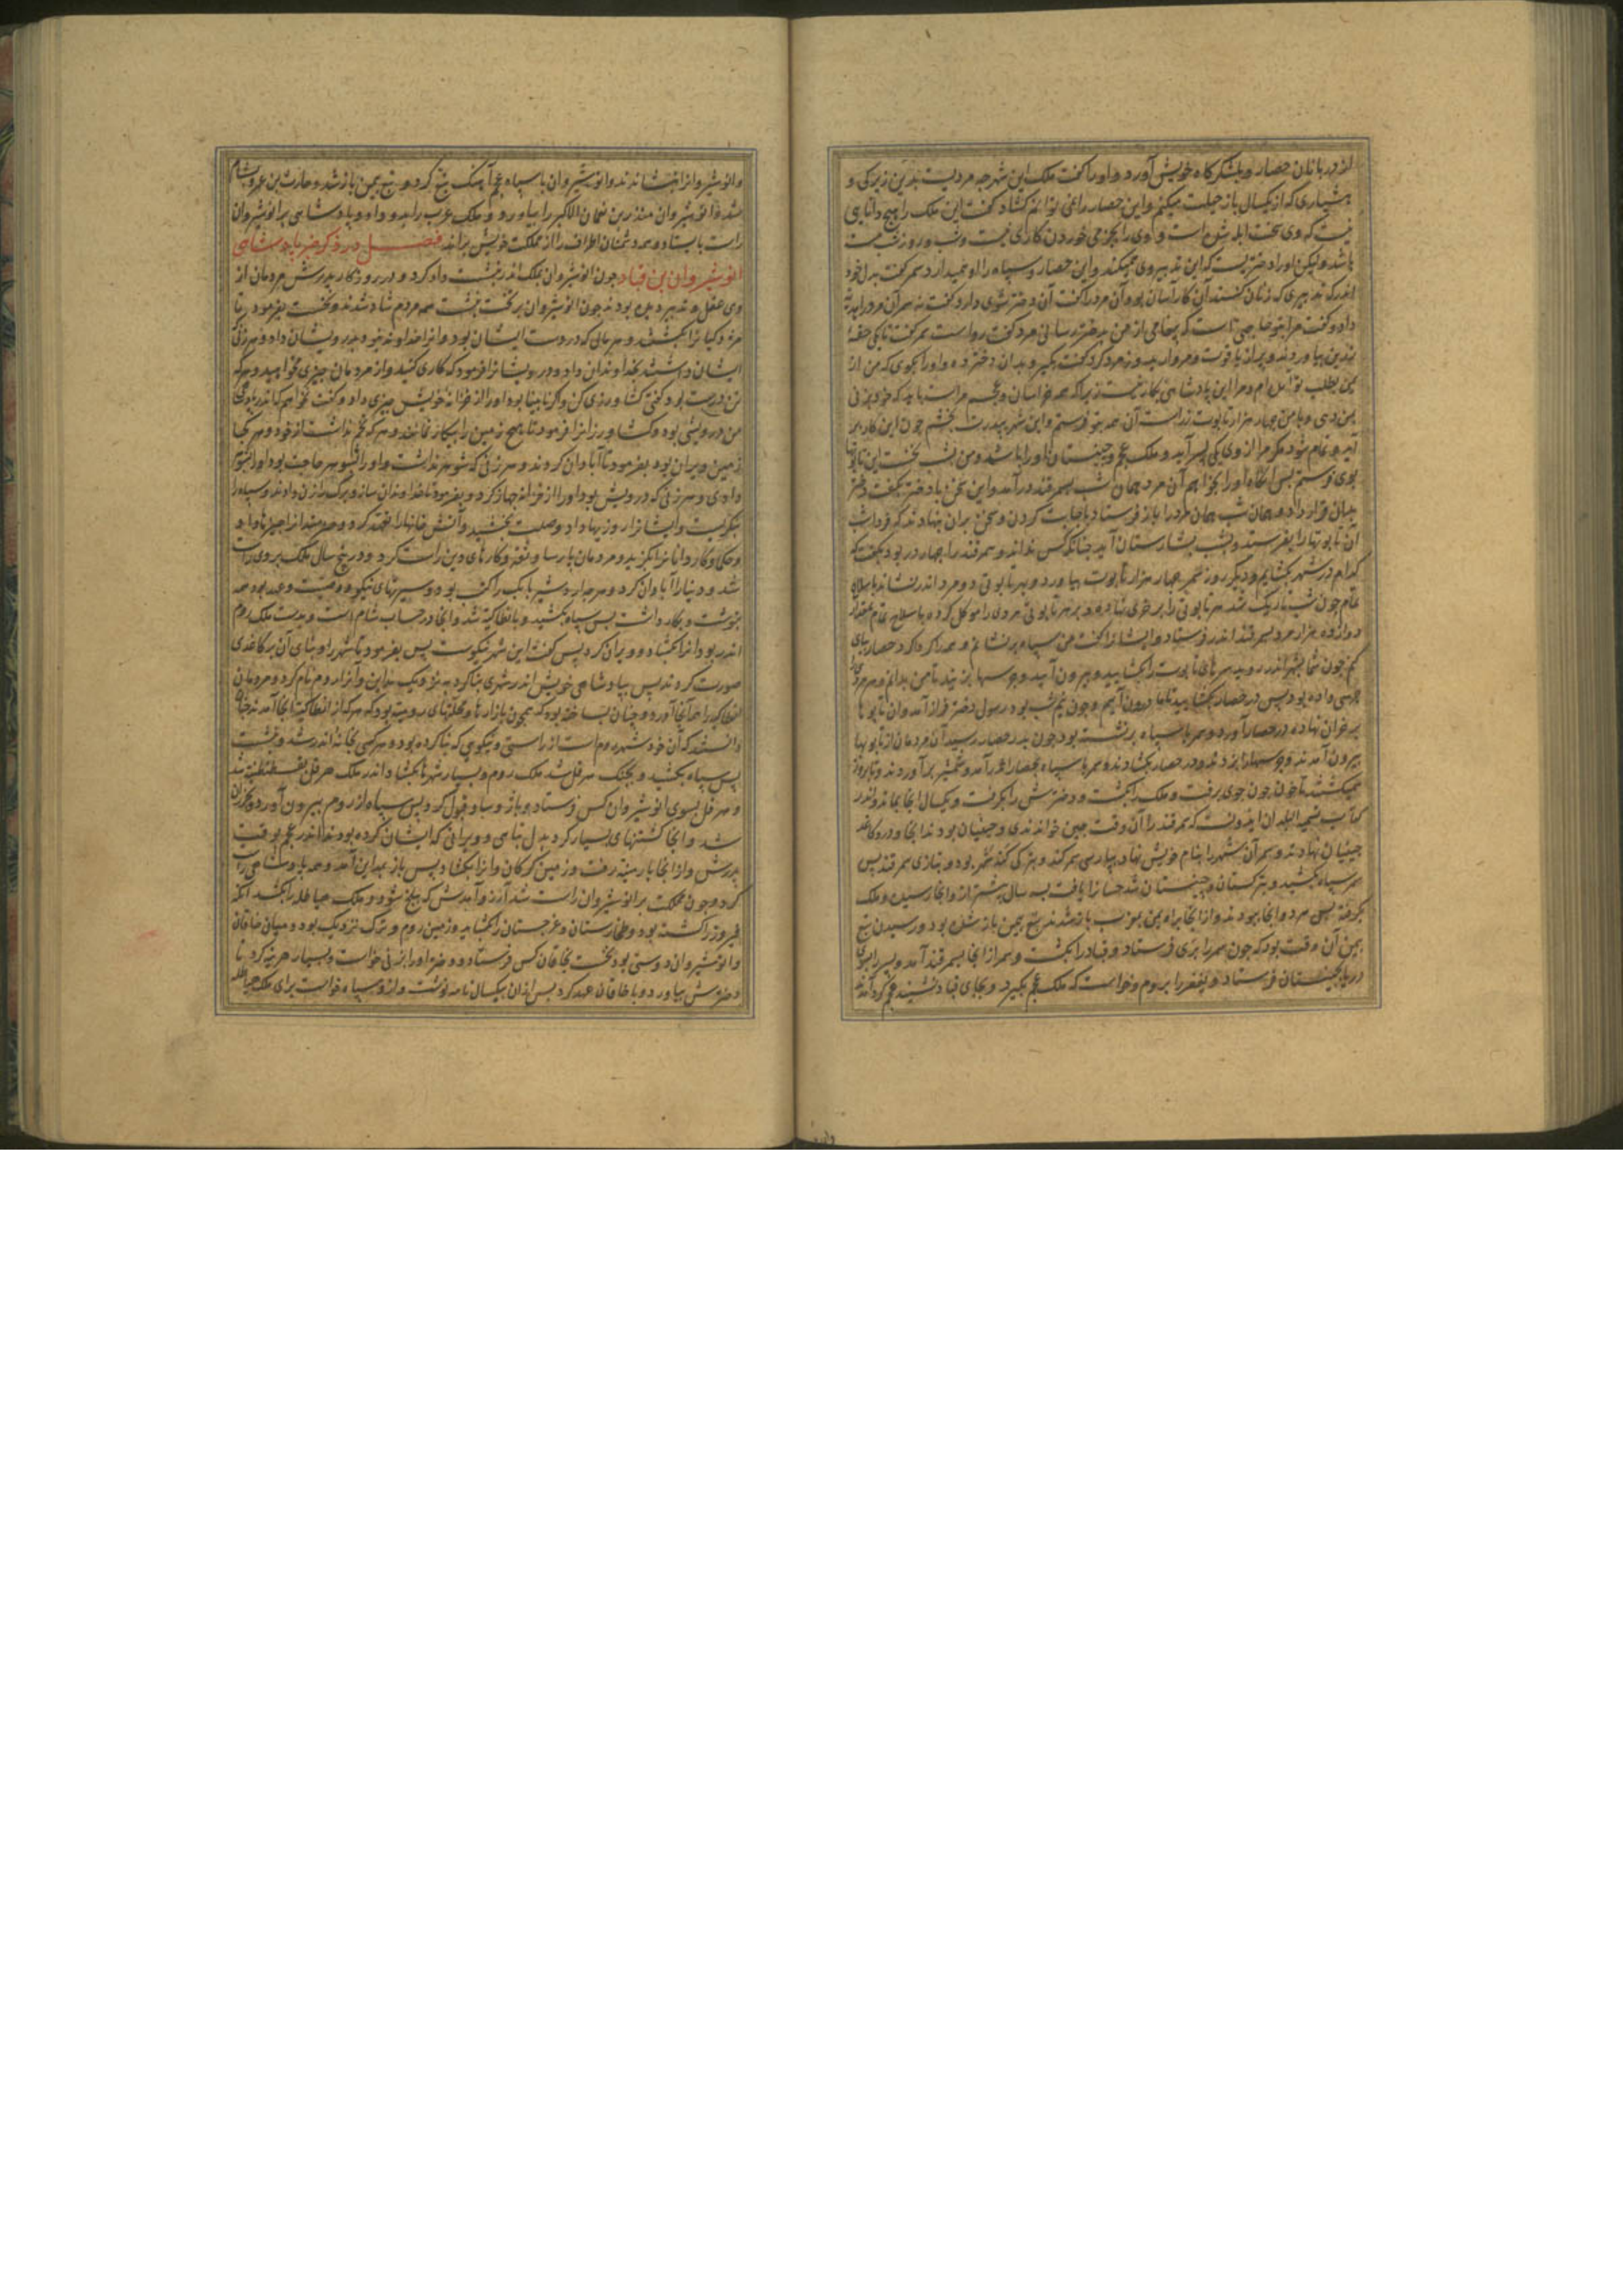 از دربانان حصار و بلشکرگاه خویش آورد و او را گفت ملک این شهر چه مردیست بدین زیرکی و
هشیاری که از یکسال باز حیلت میکنم و این حصار را می نتوانم گشاد گفت این ملک را هیچ دانایی
نیست که وی سخت ابله است و وی را بجز می خوردن کاری نیست و شب و روز مست
باشد ولیکن او را دختریست که این تدبیر وی میکند و این حصار و سپاه را او میدارد سمر گفت بدل خود
اندر که تدبیری که زنان کنند آن کار آسان بود و آن مرد را گفت آن دختر شوی دارد گفت نه
داد و گفت مرا بتو حاجتی است که پیغامی از من بدختر رسانی مرد گفت رواست سمر گفت تا یکی حقه
زرین بیاوردند و پر از یاقوت و مروارید و زمرد کرد گفت بگیر و بدان دختر ده و او را بگوی که من از
یمن بطلب تو آمده ام و مرا این پادشاهی بکار نیست زیرا که همه خراسان و عجم مراست باید که خود بزنی
بمن دهی و با من چهار هزار تابوت زر است آن همه بتو فرستم و این شهر بپدرت بخشم چون این کار بر
آید و تمام شود مگر مرا از وی یکی پسر آید و ملک عجم و چینستان او را باشد و من بشب نخست این تابوتها
بوی فرستم پس آنگاه او را بخواهم آن مرد همان شب بسمرقند در آمد و این سخن با دختر بگفت دختر
بدان قرار داد و همان شب همان مرد را باز فرستاد باجابت کردن و سخن بران بنهادند که فردا شب
آن تابوتها را بفرستد و بشب بشارستان آید چنانکه کس نداند و سمرقند را چهار در بود بگفت که
کدام در شهر بگشایم و دیگر روز سمر چهار هزار تابوت بیاورد و بهر تابوتی دو مرد اندر نشاند با سلاح
تمام چون شب تاریک شد هر تابوتی را بر خری نهاد و بر هر تابوتی مردی را موکل کرد با سلاح تمام
دوازده هزار مرد بسمرقند اندر فرستاد و ایشان را گفت من سپاه بر نشانم و همه را گرداگرد حصار بپای
کنم چون شما بشهر اندر روید سرهای تابوت را بگشایید و بیرون آیید و جرسها بزنید تا من بدانم و هر مردی را
جرسی داده بود پس در حصار بگشایید تا ما درون آییم و چون نیم شب بود رسول دختر فراز آمد و آن تابوتها
بر خران نهاده در حصار آورد و سمر با سپاه بر نشست بود چون بدر حصار رسید آن مردمان از تابوتها
بیرون آمدند و جرسها را بزدند و در حصار بگشادند و سمر با سپاه بحصار اندر آمد و شمشیر بر آوردند و تا بروز
میکشتند تا خون چون جوی برفت و ملک را بکشت و دخترش را بگرفت و یکسال آنجا بماند و اندر
کتاب البلدان ایدونست که سمرقند را آن وقت چین خواندندی و چینیان بودند آنجا و درو کاغذ
چینیان نهادند و سمر آن شهر را بنام خویش نهاد بپارسی سمرکند و بترکی کند شهر بود و بتازی سمرقند پس
سمر سپاه بکشید و بترکستان و چینستان شد حسان را یافت بسه سال پیشتر از او آنجا رسیده و ملک
بگرفته پس سمر و آنجا ببودند و از آنجا براه یمن بمغرب باز شدند تبع بیمن باز شده بود و رسیدن تبع
بیمن آن وقت بود که چون سمر را بری فرستاد و قباد را بکشت و سمر از آنجا بسمرقند آمد و پسر را بسوی
دریا بچینستان فرستاد و یعفر را بروم و خواست که ملک عجم بگیرد و بجای قباد نشیند عجم گرد آمدند
و انوشیروان را بنشاندند و انوشیروان با سپاه عجم آهنگ تبع کرد و تبع بیمن باز شد و حارث بن عمرو بشام
شد و انوشیروان منذر بن نعمان الاکبر را بیاورد و ملک عرب را بدو داد و پادشاهی بر انوشیروان
راست بایستاد و همه دشمنان اطراف را از مملکت خویش براند فصل در ذکر خبر پادشاهی
انوشیروان بن قباد چون انوشیروان بملک اندر نشست داد کرد و در روزگار پدرش مردمان از
وی عقل و تدبیر دیده بودند چون انوشیروان بر تخت نشست همه مردم شاد شدند و نخست بفرمود تا
مزدکیان را بکشتند و هر مالی که در دست ایشان بود و آنرا خداوند نبود بدرویشان داد و هر زنی
ایشان داشتند بخداوندان داد و درویشان را فرمود که کاری کنید و از مردمان چیزی مخواهید و هر که
تن درست بود گفتی کشاورزی کن و اگر نابینا بود او را از خزانه خویش چیزی داد و گفت نخواهم که اندر پادشاهی
من درویشی بود و کشاورزان را فرمود تا هیچ زمین را بیکار نمانند و هر که تخم نداشت از خود و هر کجا
زمین ویران بود بفرمود تا آبادان کردند و هر زنی که شوهر نداشت و او را بشوهر حاجت بود او را بشوی
دادی و هر زنی که درویش بود او را از خزانه جهاز کرد و بفرمود تا خداوندان ساز و برگ را زن دادند و سپاه را
بنگریست و ایشان را روزیها داد و صلت بخشید و آتش خانها را تعهد کرد و
و حکما و کارداران را برگزید و مردمان پارسا و ثقه و کارهای دین راست کرد و در پنج سال ملک بر وی راست
شد و دنیا را آبادان کرد و هر چه اردشیر بابک را کتب بود و سیرتهای نیکو و وصیت و عهد بود همه
بنوشت و بکار داشت پس سپاه بکشید و بانطاکیه شد و آنجا در حساب شام است و بدست ملک روم
اندر بود آنرا بگشاد و ویران کرد پس گفت این شهر نیکوست پس بفرمود تا شهر را و بنای آن بر کاغذی
صورت کردند پس بپادشاهی خویش اندر شهری بنا کرد بنزدیک مداین و آنرا روم نام کرد و مردمان
انطاکیه را همه آنجا آورد و چنان بساخته بود که همچون بازارها و محلتهای رومیه بود که هر که از انطاکیه آنجا آمد
دانستند که آن خود شهر روم است از راستی و نیکویی که بنا کرده بود و هر کسی بخانه اندر شد و بنشست
پس سپاه بکشید و بجنگ هرقل شد ملک روم و بسیار شهرها بگشاد اندر ملک هرقل بقسطنطنیه شد
و هرقل بسوی انوشیروان کس فرستاد و باژ و ساو قبول کرد پس سپاه از روم بیرون آورد و بخزران
شد و آنجا کشتنهای بسیار کرد بدل تباهی و ویرانی که ایشان کرده بودند اندر عجم بوقت
پدرش و از آنجا بارمینیه رفت و زمین گرگان و آنرا بگشاد پس باز بمداین آمد و همه پادشاهی راست
کرد و چون مملکت بر انوشیروان راست شد آرزو آمدش که ببلخ شود و ملک هیاطله را بکشد آنکه
فیروز را کشته بود و طخارستان و غرجستان را بگشاید و زمین روم و ترک نزدیک بود و میان خاقان
و انوشیروان دوستی بود نخست بخاقان کس فرستاد و دختر او را بزنی خواست و بسیار هزینه کرد تا
دخترش بیاورد و با خاقان عهد کرد پس از آن بیکسال نامه نوشت و ازو سپاه خواست برای ملک هیاطله